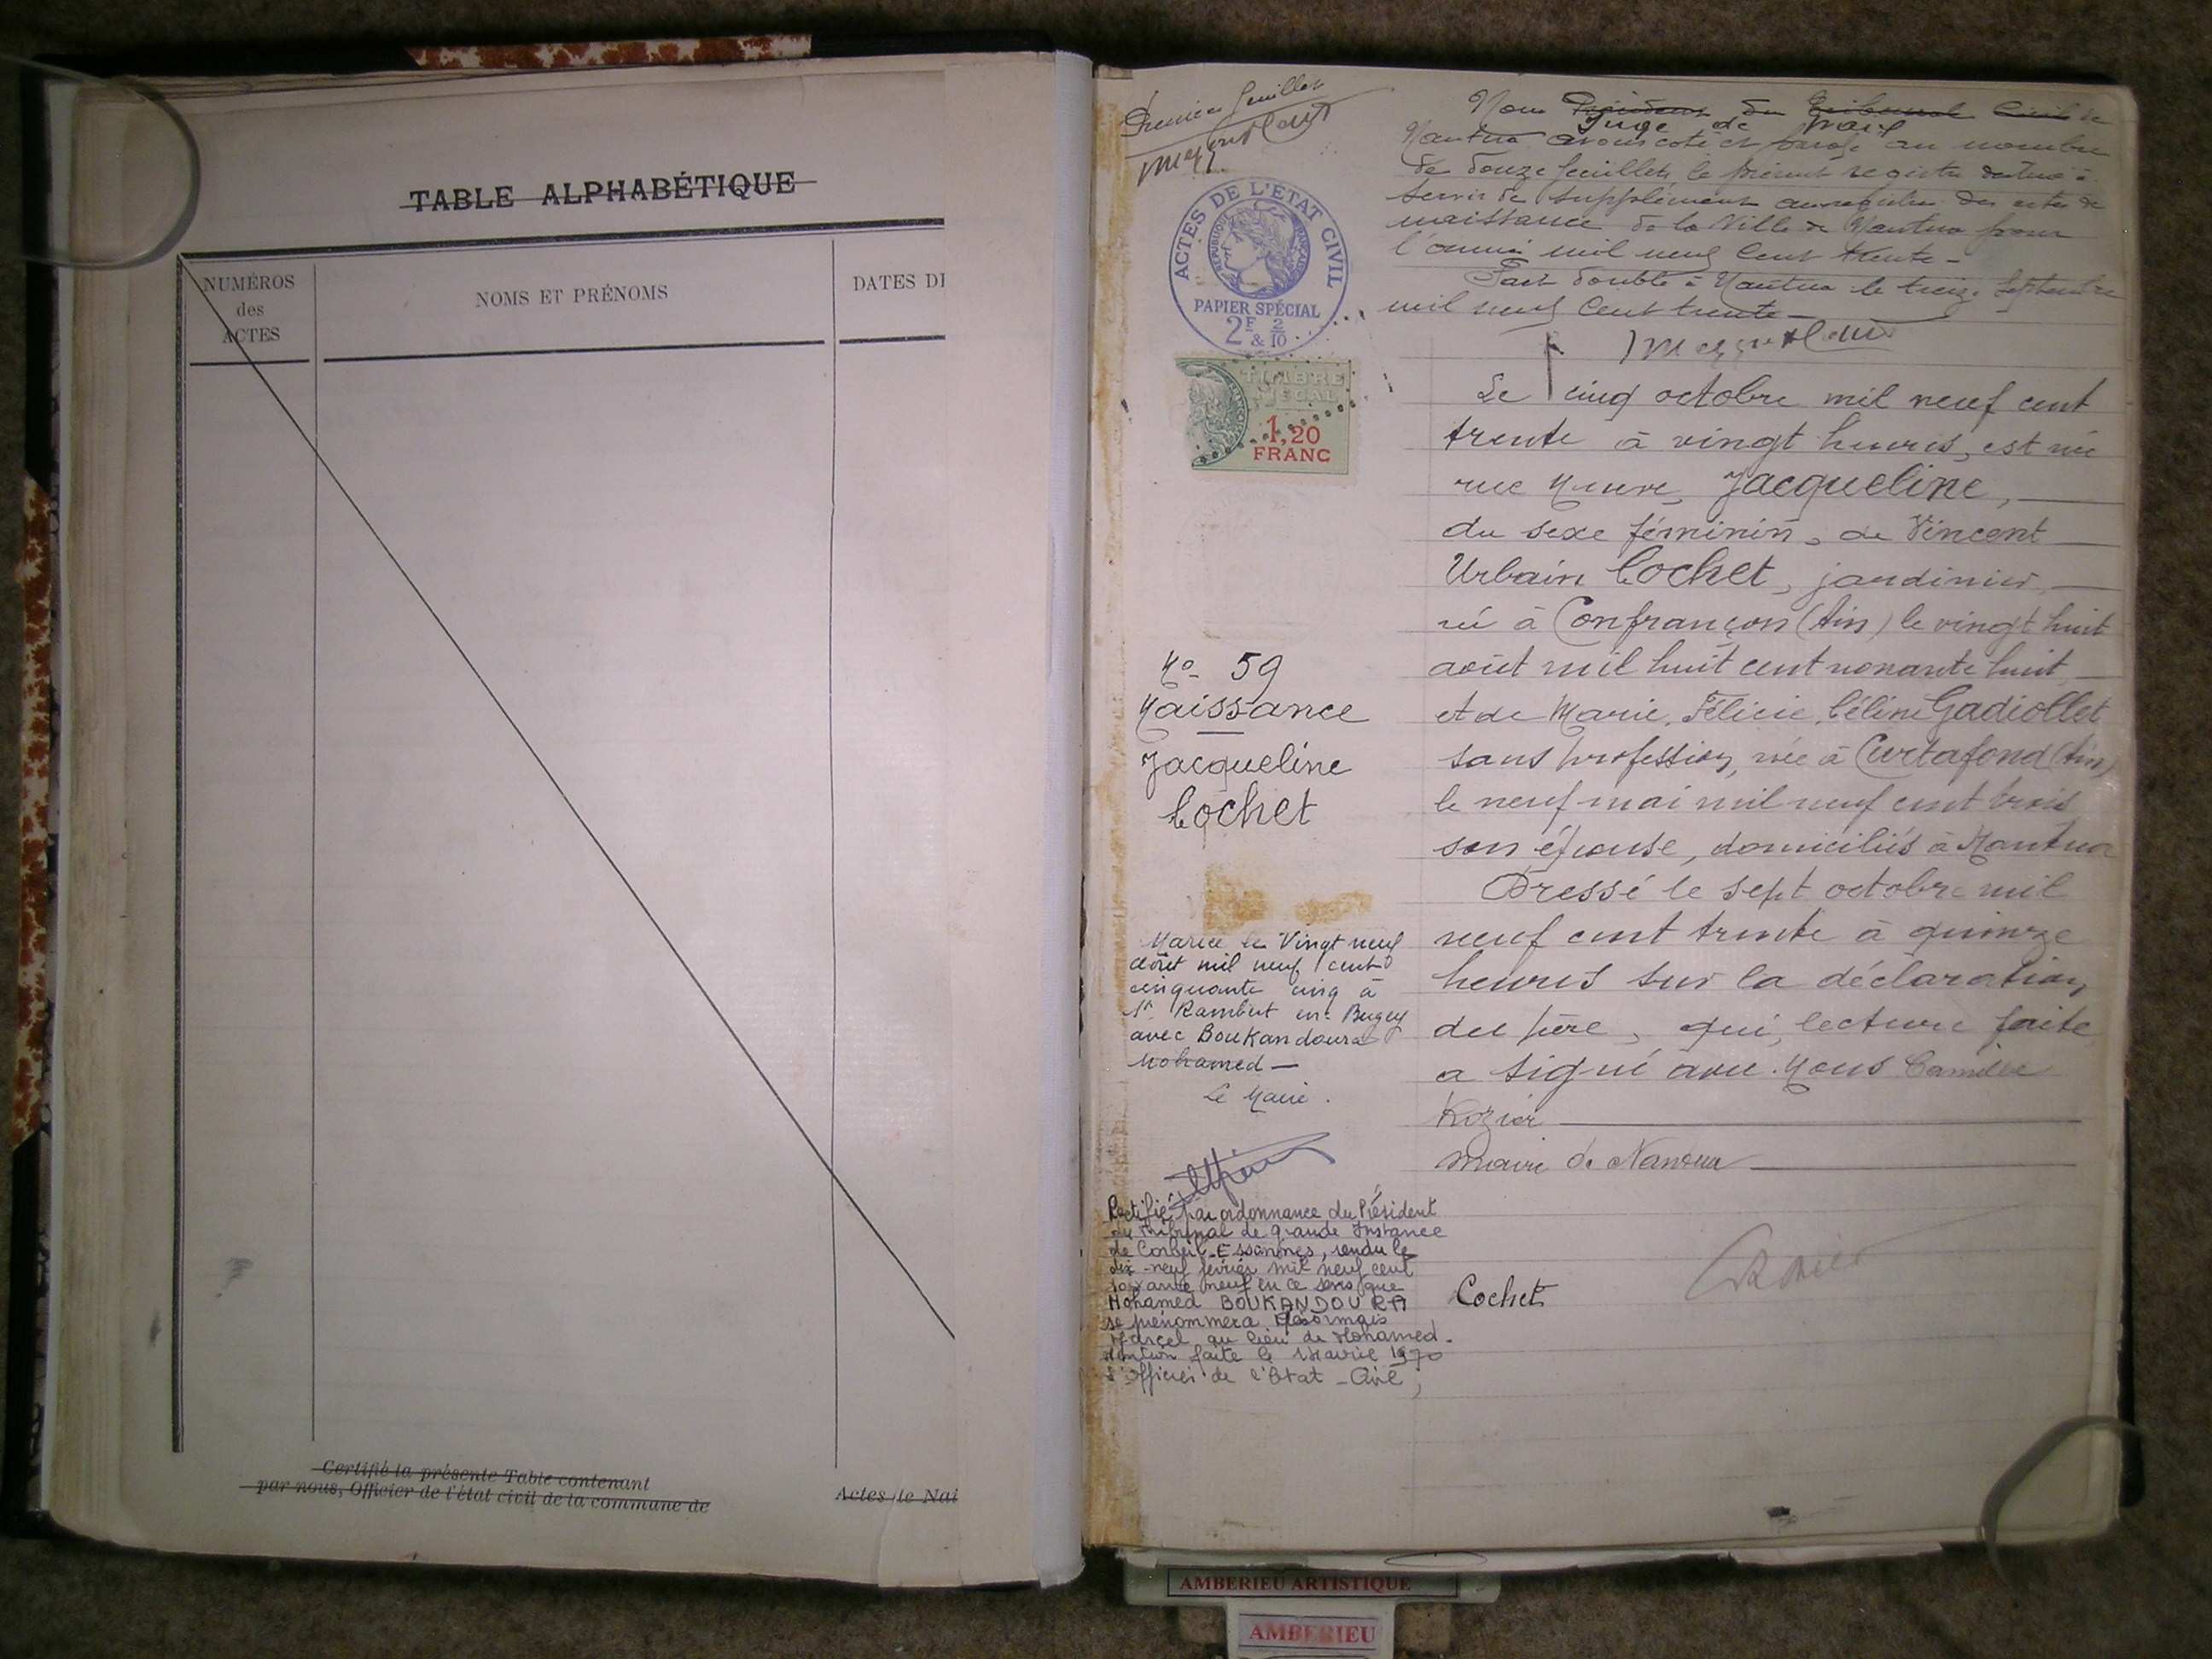 TABLE ALPHABÉTIQUE
NUMÉROS
des
ACTES
NOMS ET PRÉNOMS
DATES DE
Certifié la présente Table contenant
par nous, Officier de l'état civil de la commune de
Actes de Nai
Premier feuillet
Nous Président du Tribunal Civil de
Juge de paix
Nantua avons coté et parafé au nombre
de douze feuillets le présent registre destiné à
servir de supplément au registre des actes de
naissance de la Ville de Nantua pour
l'année mil neuf cent trente -
Fait double à Nantua le treize Septembre
mil neuf cent trente -
ACTES DE L'ETAT CIVIL
REPUBLIQUE FRANÇAISE
PAPIER SPÉCIAL
2F & 2/10
TIMBRE
FISCAL
1,20
FRANC
Le cinq octobre mil neuf cent
trente à vingt heures, est née
rue Neuve, Jacqueline,
du sexe féminin, de Vincent
Urbain Cochet, jardinier
né à Confrançon (Ain) le vingt huit
août mil huit cent nonante huit
et de Marie, Félicie, Céline Gadiollet
sans profession, née à Curtafond (Ain)
le neuf mai mil neuf cent trois
son épouse, domiciliés à Nantua
Dressé le sept octobre mil
neuf cent trente à quinze
heures sur la déclaration
du père, qui, lecture faite
a signé avec Nous Camille
Rozier
maire de Nantua
Cochet
No 59
Naissance
Jacqueline
Cochet
Mariée le Vingt neuf
août mil neuf cent
cinquante cinq à
St Rambert en-Bugey
avec Boukandoura
Mohamed —
Le Maire.
Rectifié par ordonnance du Président
du Tribunal de grande Instance
de Corbeil-Essonnes, rendu le
dix-neuf février mil neuf cent
soixante neuf en ce sens que
Mohamed BOUKANDOURA
se prénommera désormais
Marcel au lieu de Mohamed.
Mention faite le avril 1970
L'officier de l'Etat-Civil,
AMBERIEU ARTISTIQUE
AMBERIEU